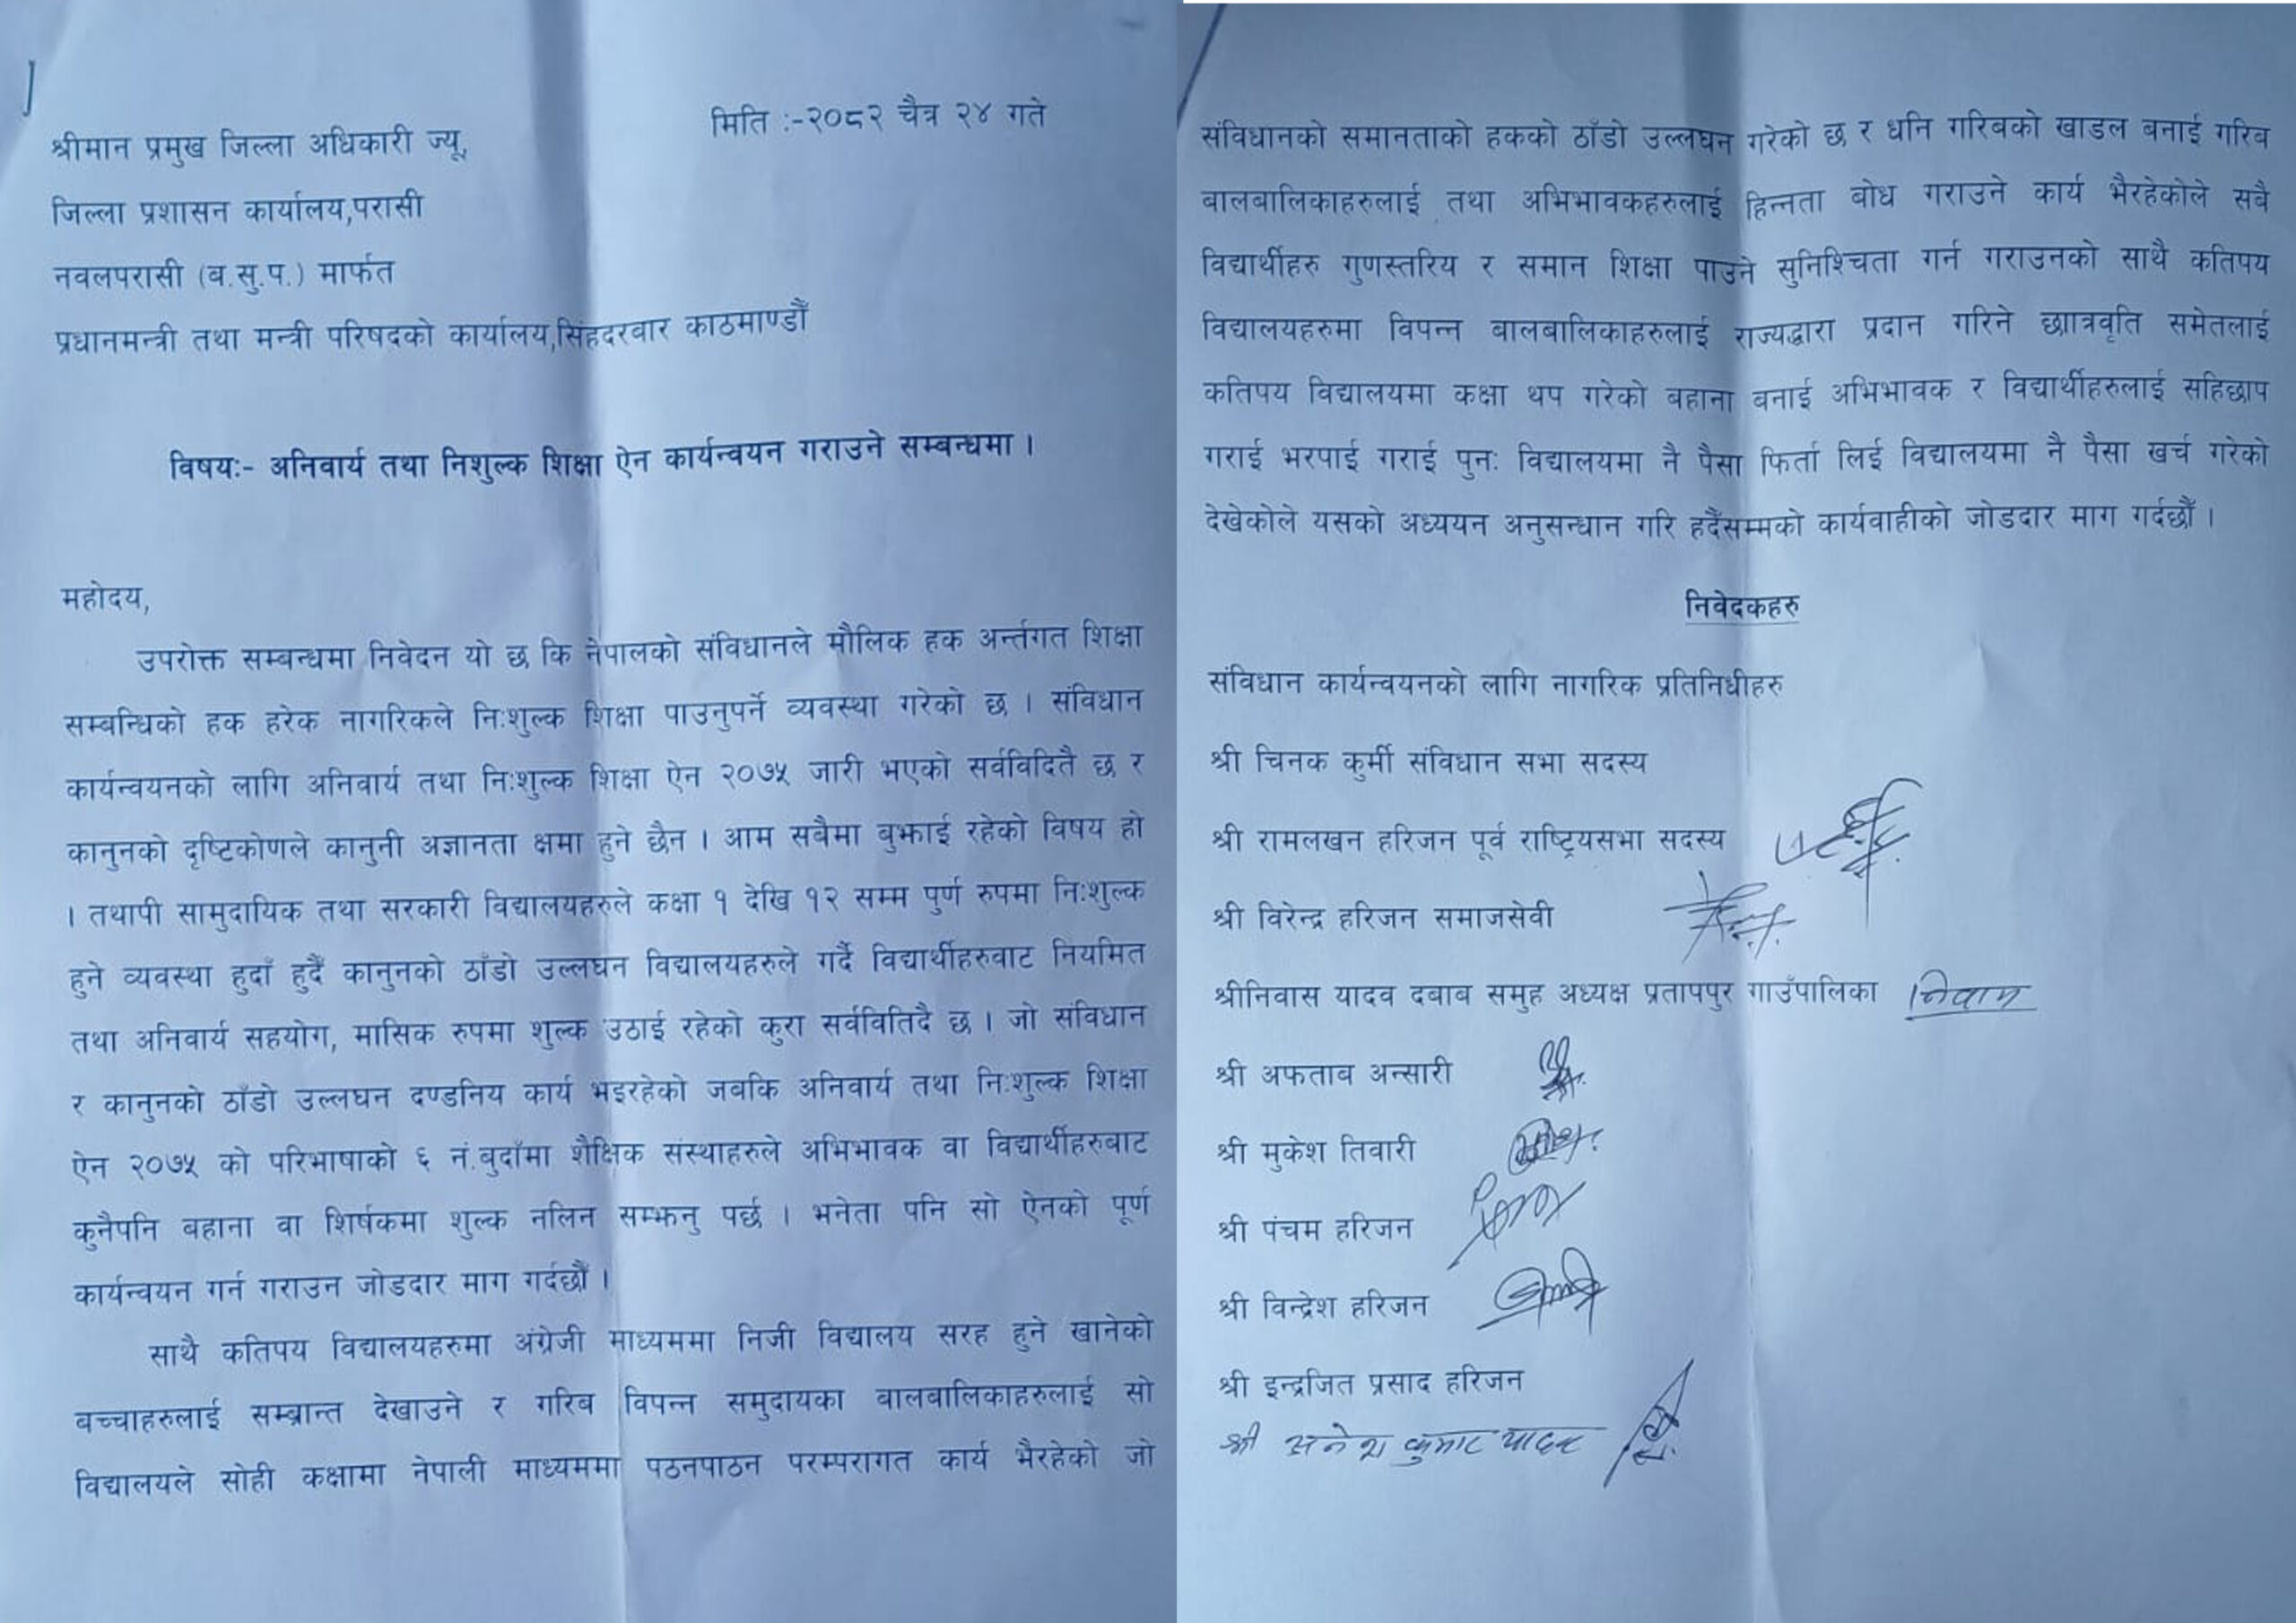 मिति :-२०८२ चैत्र २४ गते
श्रीमान प्रमुख जिल्ला अधिकारी ज्यू,
जिल्ला प्रशासन कार्यालय,परासी
नवलपरासी (ब.सु.प.) मार्फत
प्रधानमन्त्री तथा मन्त्री परिषदको कार्यालय,सिंहदरवार काठमाण्डौँ
विषयः- अनिवार्य तथा निशुल्क शिक्षा ऐन कार्यन्वयन गराउने सम्बन्धमा ।
महोदय,
उपरोक्त सम्बन्धमा निवेदन यो छ कि नेपालको संविधानले मौलिक हक अर्न्तगत शिक्षा
सम्बन्धिको हक हरेक नागरिकले नि:शुल्क शिक्षा पाउनुपर्ने व्यवस्था गरेको छ । संविधान
कार्यन्वयनको लागि अनिवार्य तथा नि:शुल्क शिक्षा ऐन २०७५ जारी भएको सर्वविदितै छ र
कानुनको दृष्टिकोणले कानुनी अज्ञानता क्षमा हुने छैन । आम सबैमा बुझाई रहेको विषय हो
। तथापी सामुदायिक तथा सरकारी विद्यालयहरुले कक्षा १ देखि १२ सम्म पुर्ण रुपमा नि:शुल्क
हुने व्यवस्था हुदाँ हुदैँ कानुनको ठाँडो उल्लघन विद्यालयहरुले गर्दै विद्यार्थीहरुवाट नियमित
तथा अनिवार्य सहयोग, मासिक रुपमा शुल्क उठाई रहेको कुरा सर्वविति‍दै छ । जो संविधान
र कानुनको ठाँडो उल्लघन दण्डनिय कार्य भइरहेको जबकि अनिवार्य तथा नि:शुल्क शिक्षा
ऐन २०७५ को परिभाषाको ६ नं.बुदाँमा शैक्षिक संस्थाहरुले अभिभावक वा विद्यार्थीहरुबाट
कुनैपनि बहाना वा शिर्षकमा शुल्क नलिन सम्झनु पर्छ । भनेता पनि सो ऐनको पूर्ण
कार्यन्वयन गर्न गराउन जोडदार माग गर्दछौँ ।
साथै कतिपय विद्यालयहरुमा अंग्रेजी माध्यममा निजी विद्यालय सरह हुने खानेको
बच्चाहरुलाई सम्ब्रान्त देखाउने र गरिब विपन्न समुदायका बालबालिकाहरुलाई सो
विद्यालयले सोही कक्षामा नेपाली माध्यममा पठनपाठन परम्परागत कार्य भैरहेको जो
संविधानको समानताको हकको ठाँडो उल्लघन गरेको छ र धनि गरिबको खाडल बनाई गरिब
बालबालिकाहरुलाई तथा अभिभावकहरुलाई हिन्नता बोध गराउने कार्य भैरहेकोले सबै
विद्यार्थीहरु गुणस्तरिय र समान शिक्षा पाउने सुनिश्चिता गर्न गराउनको साथै कतिपय
विद्यालयहरुमा विपन्न बालबालिकाहरुलाई राज्यद्धारा प्रदान गरिने छाात्रवृति समेतलाई
कतिपय विद्यालयमा कक्षा थप गरेको बहाना बनाई अभिभावक र विद्यार्थीहरुलाई सहिछाप
गराई भरपाई गराई पुनः विद्यालयमा नै पैसा फिर्ता लिई विद्यालयमा नै पैसा खर्च गरेको
देखेकोले यसको अध्ययन अनुसन्धान गरि हदैँसम्मको कार्यवाहीको जोडदार माग गर्दछौँ ।
निवेदकहरु
संविधान कार्यन्वयनको लागि नागरिक प्रतिनिधीहरु
श्री चिनक कुर्मी संविधान सभा सदस्य
श्री रामलखन हरिजन पूर्व राष्ट्रियसभा सदस्य
श्री विरेन्द्र हरिजन समाजसेवी
श्रीनिवास यादव दबाब समुह अध्यक्ष प्रतापपुर गाउँपालिका
श्री अफताब अन्सारी
श्री मुकेश तिवारी
श्री पंचम हरिजन
श्री विन्द्रेश हरिजन
श्री इन्द्रजित प्रसाद हरिजन
श्री कुमार यादव